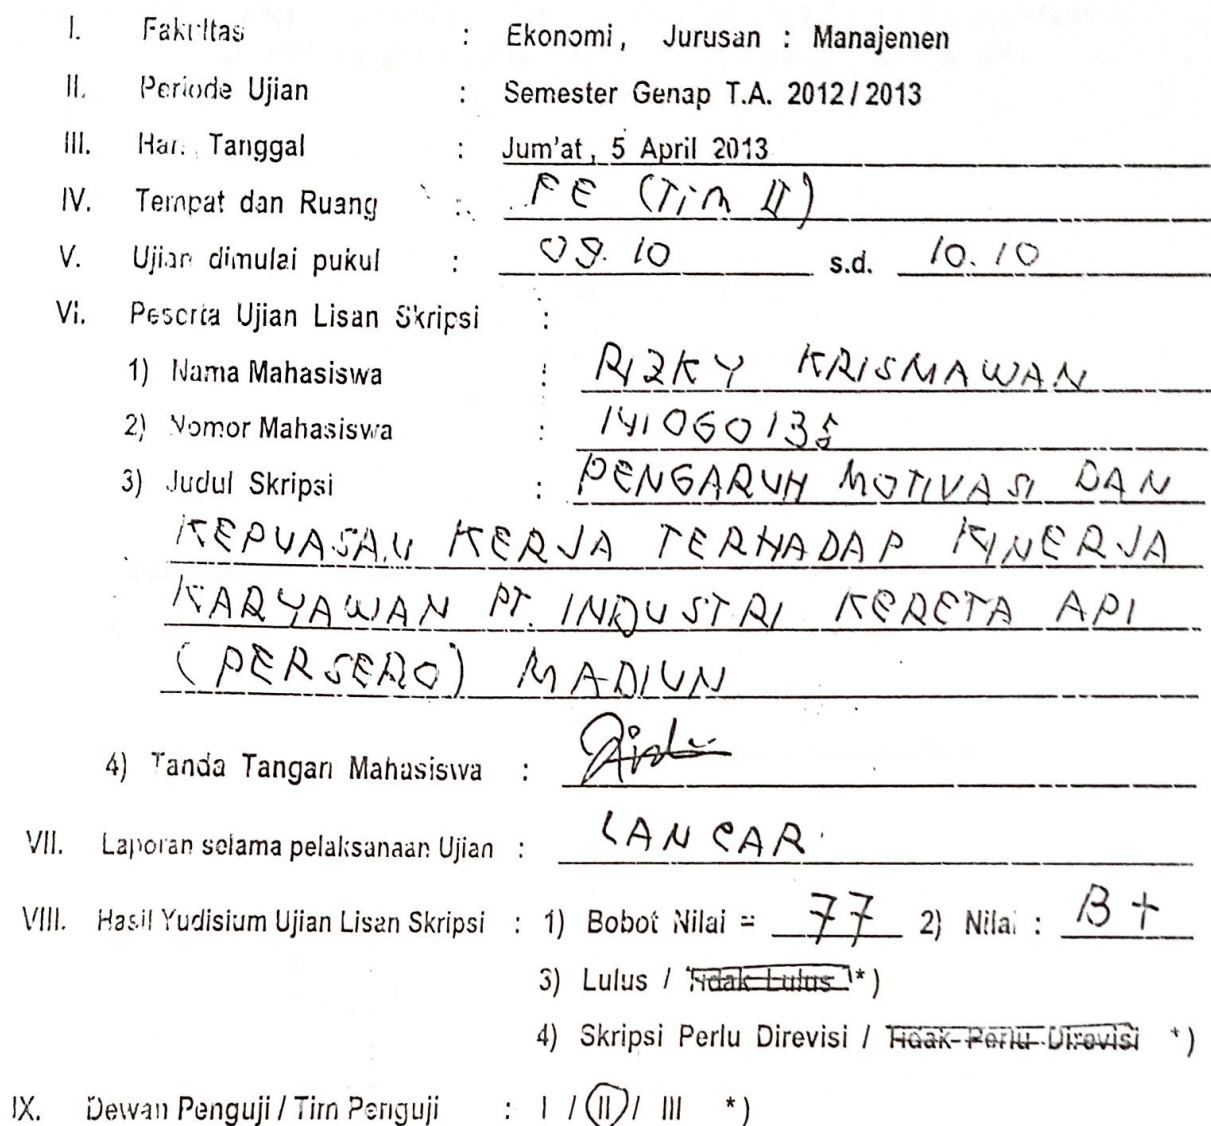 I. Fakultas : Ekonomi, Jurusan : Manajemen
II. Periode Ujian : Semester Genap T.A. 2012 / 2013
III. Hari, Tanggal : Jum'at, 5 April 2013
IV. Tempat dan Ruang : FE (Tim II)
V. Ujian dimulai pukul : 09.10 s.d. 10.10
VI. Peserta Ujian Lisan Skripsi :
1) Nama Mahasiswa : RIZKY KRISMAWAN
2) Nomor Mahasiswa : 141060135
3) Judul Skripsi : PENGARUH MOTIVASI DAN
KEPUASAN KERJA TERHADAP KINERJA
KARYAWAN PT. INDUSTRI KERETA API
(PERSERO) MADIUN
4) Tanda Tangan Mahasiswa :
VII. Laporan selama pelaksanaan Ujian : LANCAR
VIII. Hasil Yudisium Ujian Lisan Skripsi : 1) Bobot Nilai = 77 2) Nilai : B+
3) Lulus / Tidak Lulus *)
4) Skripsi Perlu Direvisi / Tidak Perlu Direvisi *)
IX. Dewan Penguji / Tim Penguji : I / II / III *)